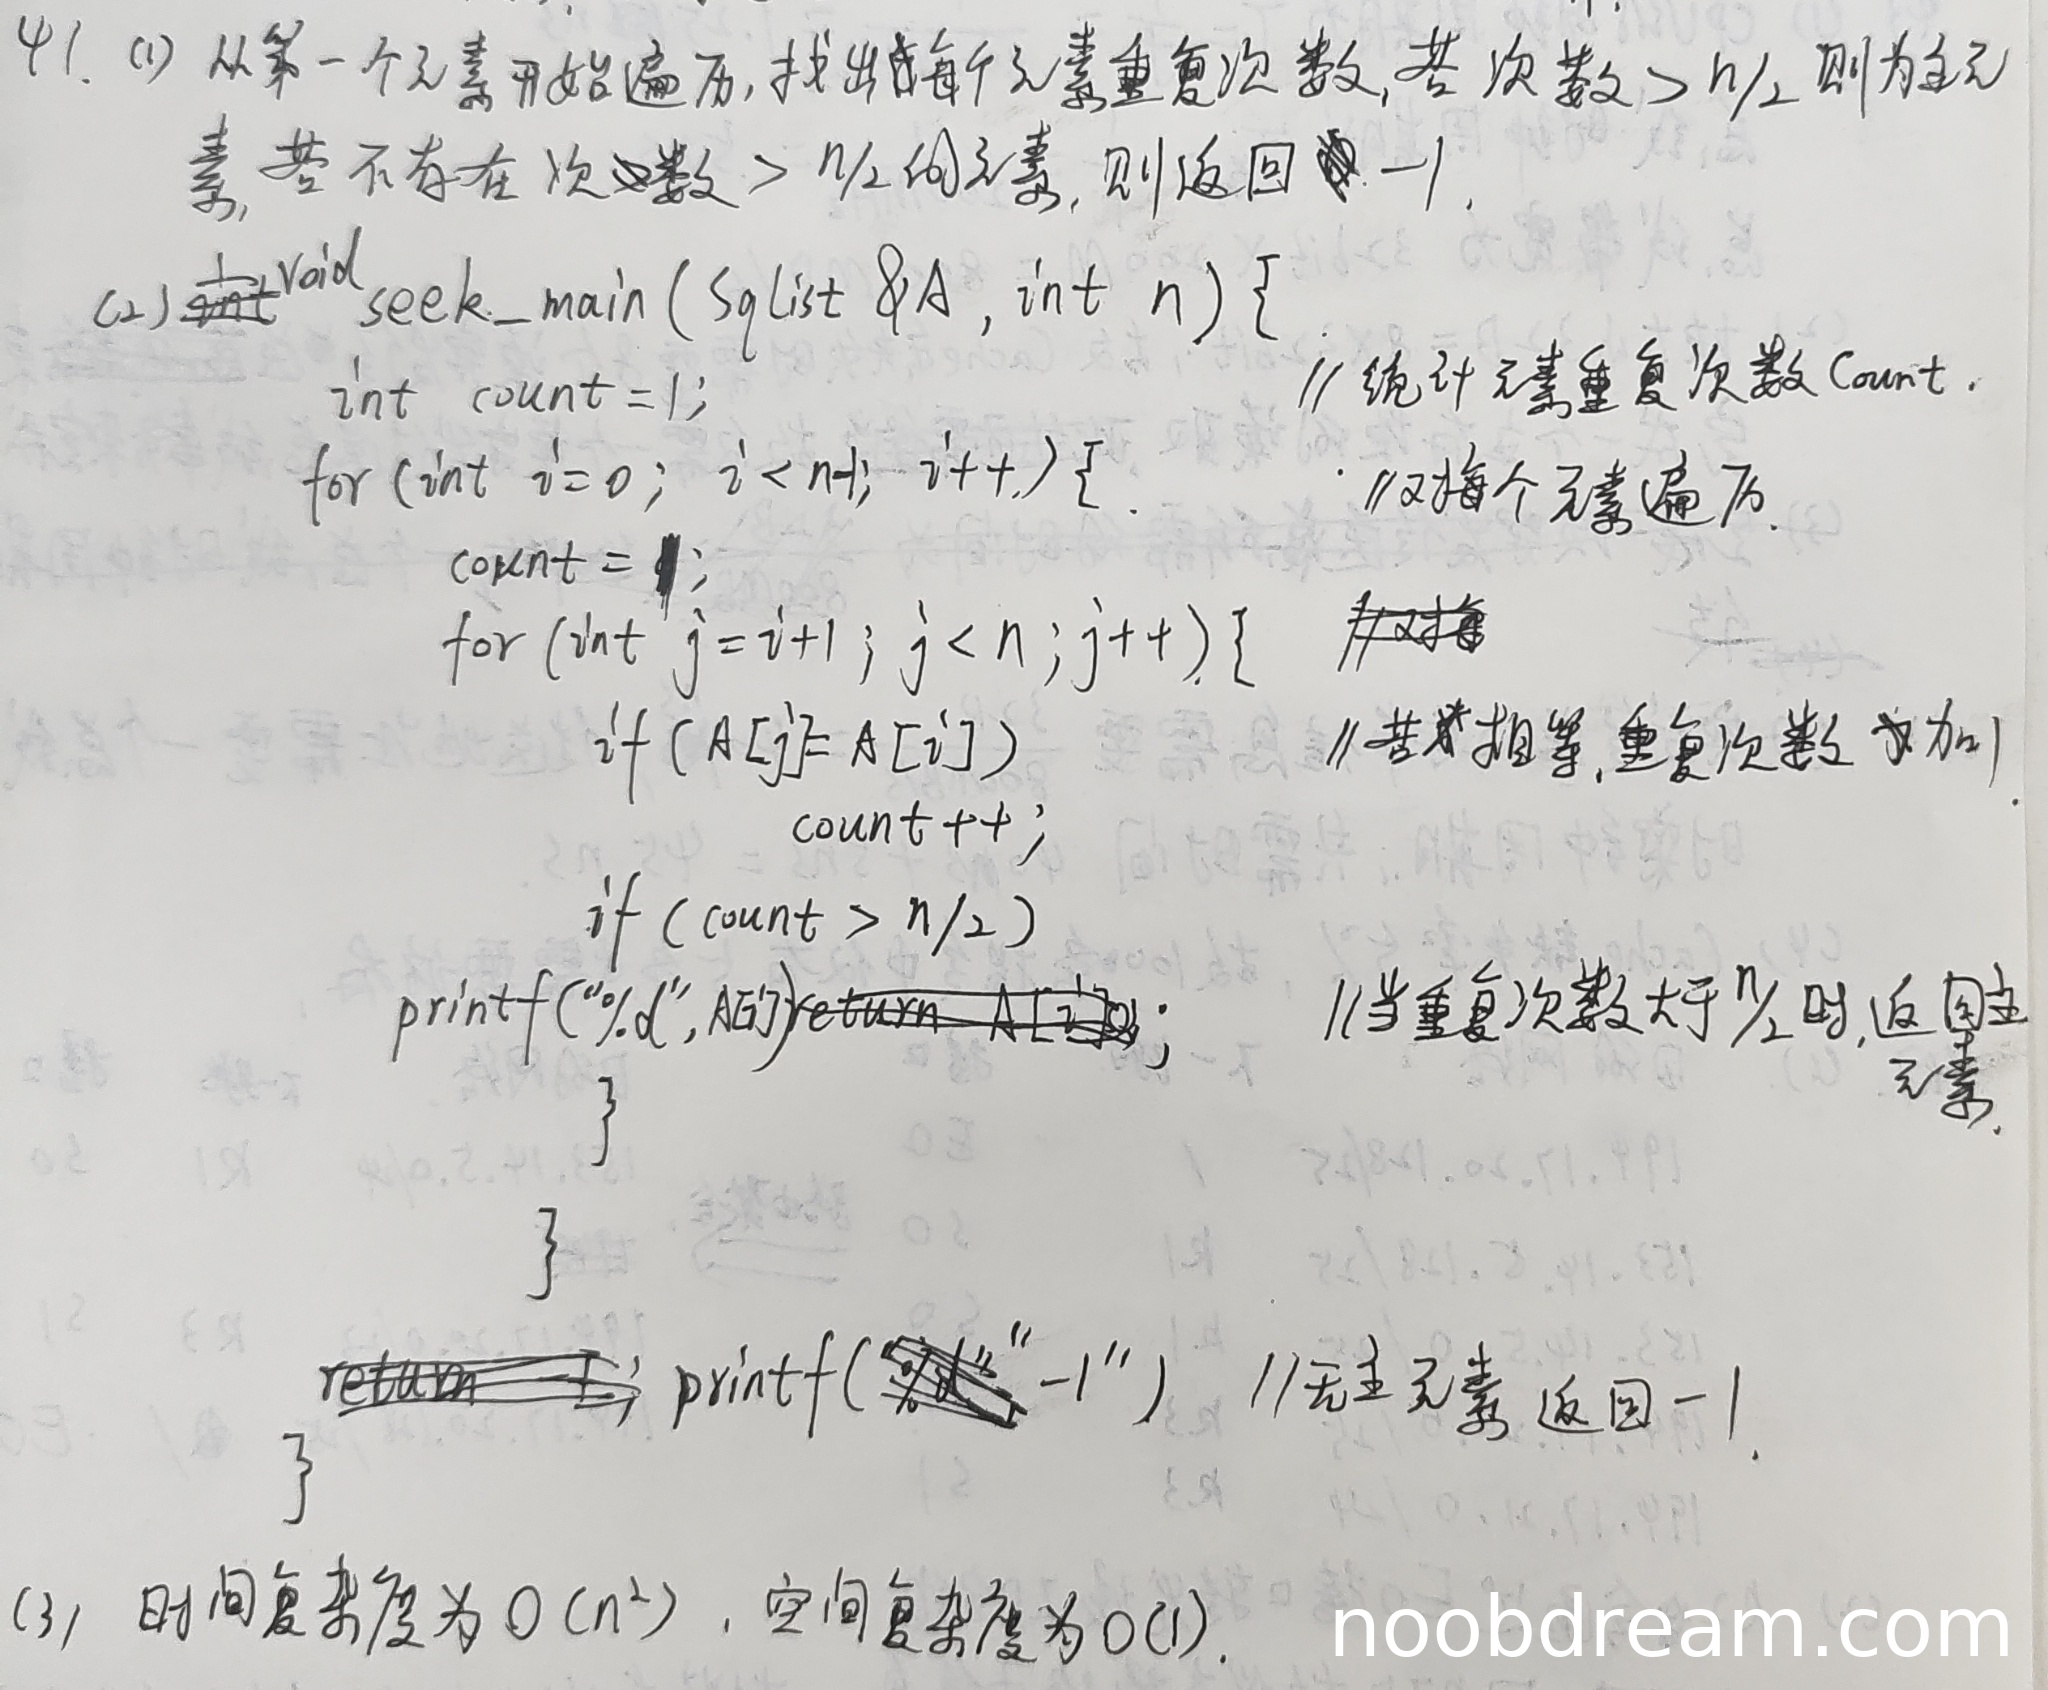 41. (1) 从第一个元素开始遍历,找出每个元素重复次数,若次数>n/2则为主元
素,若不存在次数>n/2的元素,则返回 -1.
(2) void seek_main(Sqlist &A, int n){
int count=1; //统计元素重复次数Count.
for(int i=0; i<n-1; i++){ //对每个元素遍历.
count=1;
for(int j=i+1; j<n; j++){
if(A[j]=A[i]) //若相等,重复次数加1.
count++;
if(count > n/2)
printf("%d",A[i]); //当重复次数大于n/2时,返回主
元素.
}
}
printf("-1") //无主元素返回-1.
}
(3) 时间复杂度为O(n²),空间复杂度为O(1).
noobdream.com